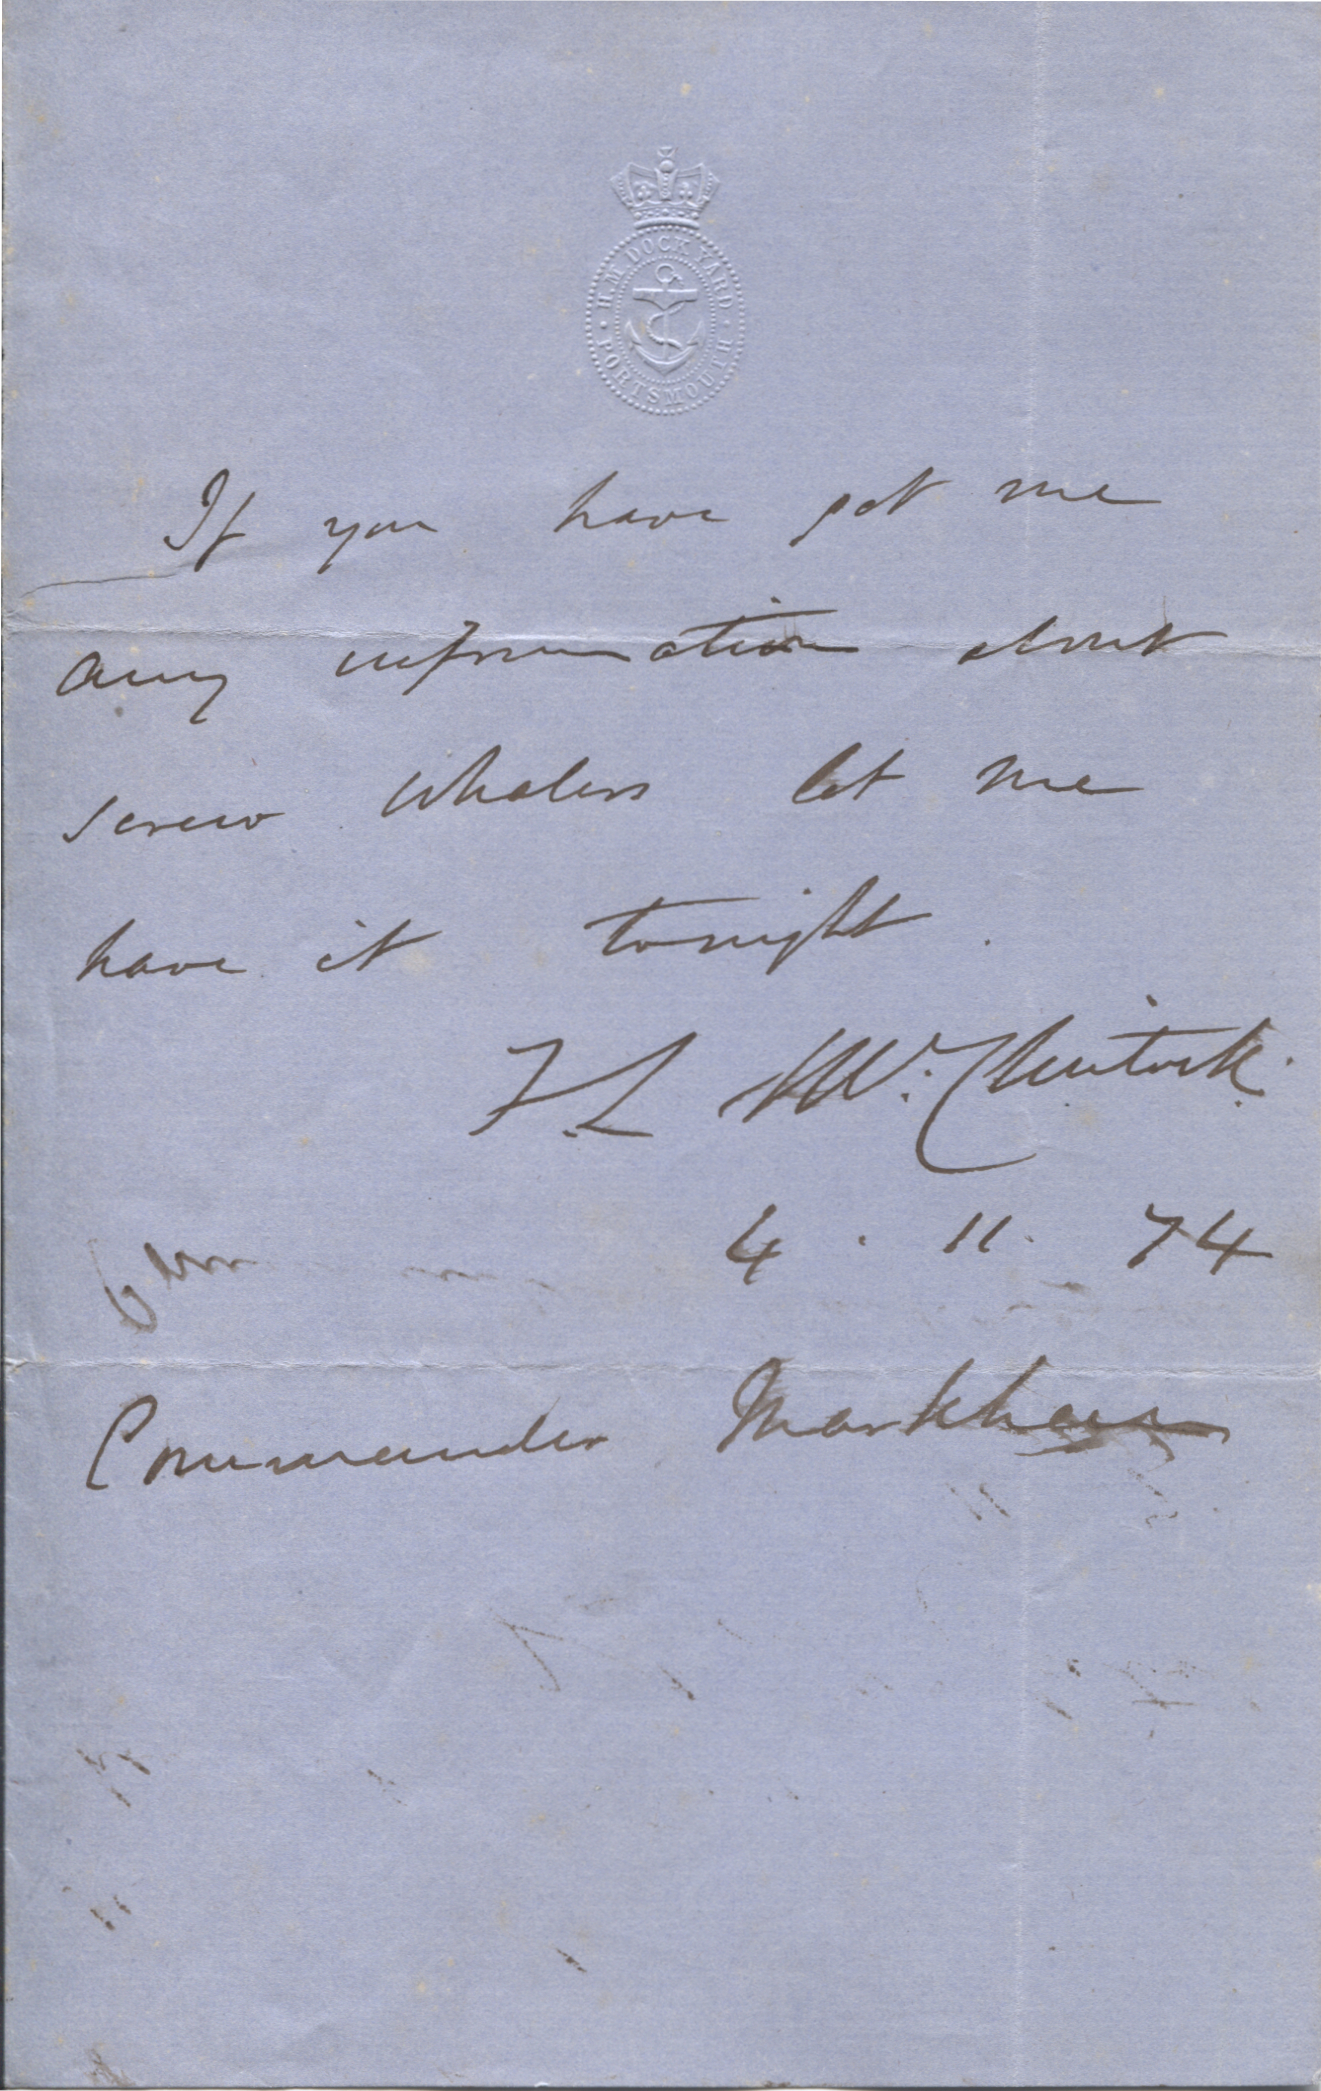 H.M. DOCK YARD
PORTSMOUTH
If you have got me
any information about
screw whalers let me
have it tonight.
F. L. McClintock.
4 . 11 . 74
Commander Markham